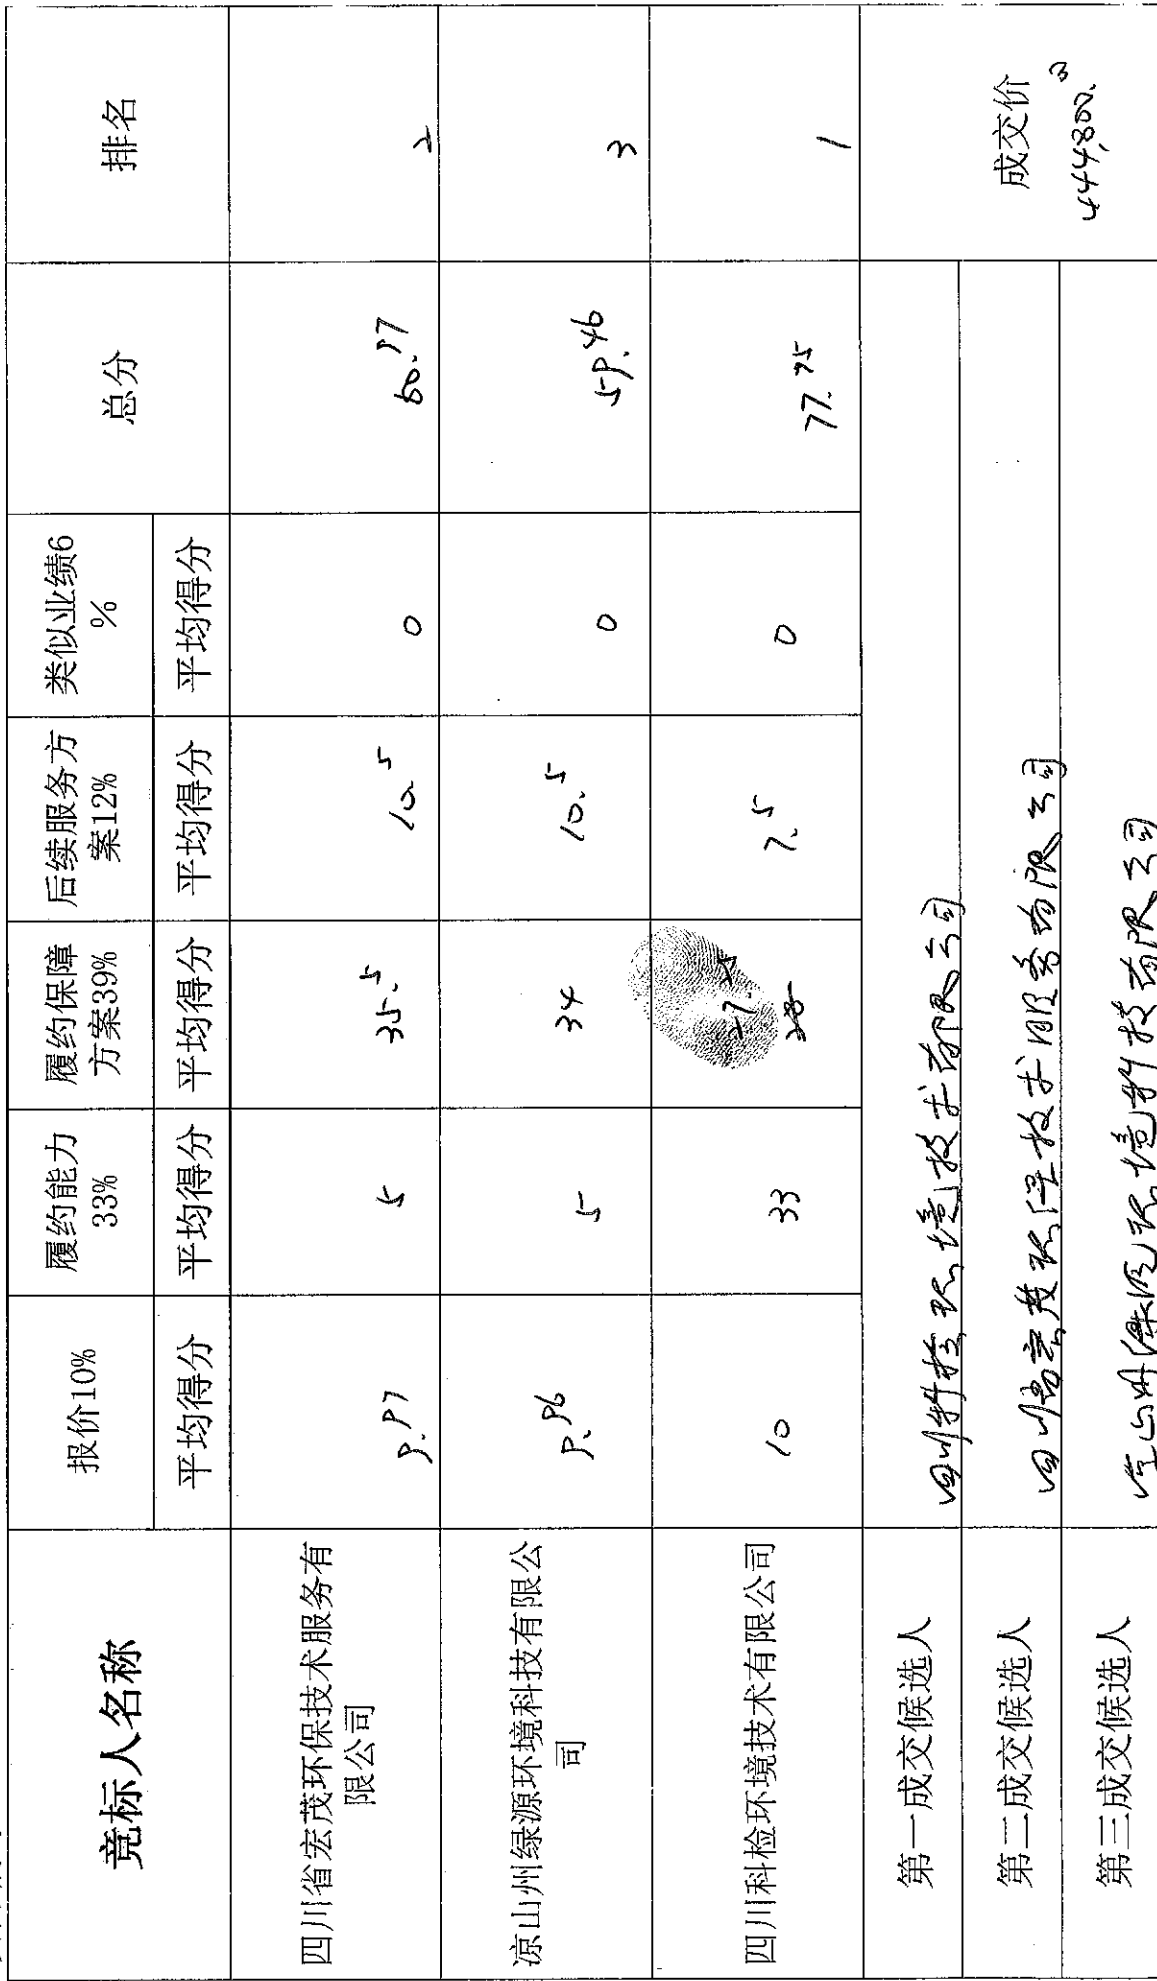 竟标人名称
报价10%
履约能力
33%
履约保障
方案39%
后续服务方
案12%
类似业绩6
%
总分
排名
平均得分
平均得分
平均得分
平均得分
平均得分
四川省宏茂环保技术服务有
限公司
9.97
5
35.5
10.5
0
60.97
2
凉山州绿源环境科技有限公
司
9.96
5
34
10.5
0
59.46
3
四川科检环境技术有限公司
10
33
27.25
28
7.5
0
77.75
1
第一成交候选人
四川科检环境技术有限公司
第二成交候选人
四川省宏茂环保技术服务有限公司
第三成交候选人
凉山州绿源环境科技有限公司
成交价
444,800.